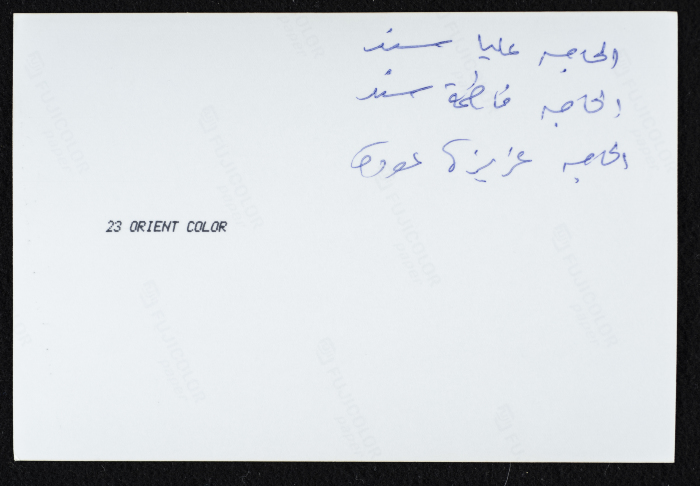 الحاجه عليا سند
الحاجه فاطمة سند
الحاجه عزيزة عودة
23 ORIENT COLOR
FUJICOLOR
FUJICOLOR
FUJICOLOR
FUJICOLOR
FUJICOLOR
FUJICOLOR